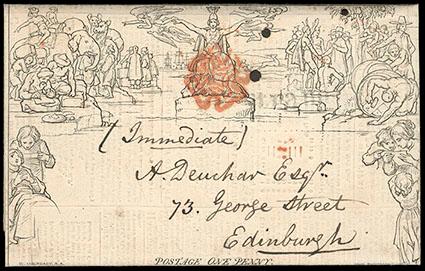 (Immediate)
A. Deuchar Esqr.
73. George Street
Edinburgh.
POSTAGE ONE PENNY.